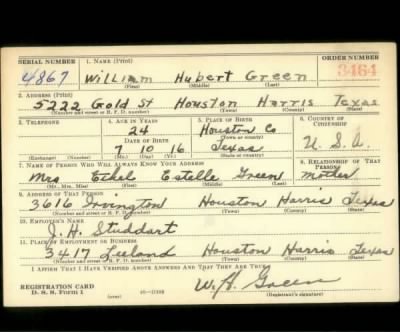 SERIAL NUMBER 1. NAME (Print) ORDER NUMBER
4867 William Hubert Green 3464
(First) (Middle) (Last)
2. ADDRESS (Print)
5222 Gold St Houston Harris Texas
(Number and street or R. F. D. number) (Town) (County) (State)
3. TELEPHONE 4. AGE IN YEARS 5. PLACE OF BIRTH 6. COUNTRY OF CITIZENSHIP
24 Houston Co
DATE OF BIRTH (Town or county)
7 10 16 Texas U. S. A.
(Exchange) (Number) (Mo.) (Day) (Yr.) (State or country)
7. NAME OF PERSON WHO WILL ALWAYS KNOW YOUR ADDRESS 8. RELATIONSHIP OF THAT PERSON
Mrs Ethel Estelle Green mother
(Mr., Mrs., Miss) (First) (Middle) (Last)
9. ADDRESS OF THAT PERSON
3616 Irvington Houston Harris Texas
(Number and street or R. F. D. number) (Town) (County) (State)
10. EMPLOYER'S NAME
J. H. Studdart
11. PLACE OF EMPLOYMENT OR BUSINESS
3417 Leeland Houston Harris Texas
(Number and street or R. F. D. number) (Town) (County) (State)
I AFFIRM THAT I HAVE VERIFIED ABOVE ANSWERS AND THAT THEY ARE TRUE.
REGISTRATION CARD W. H. Green
D. S. S. Form 1 (over) (Registrant's signature)